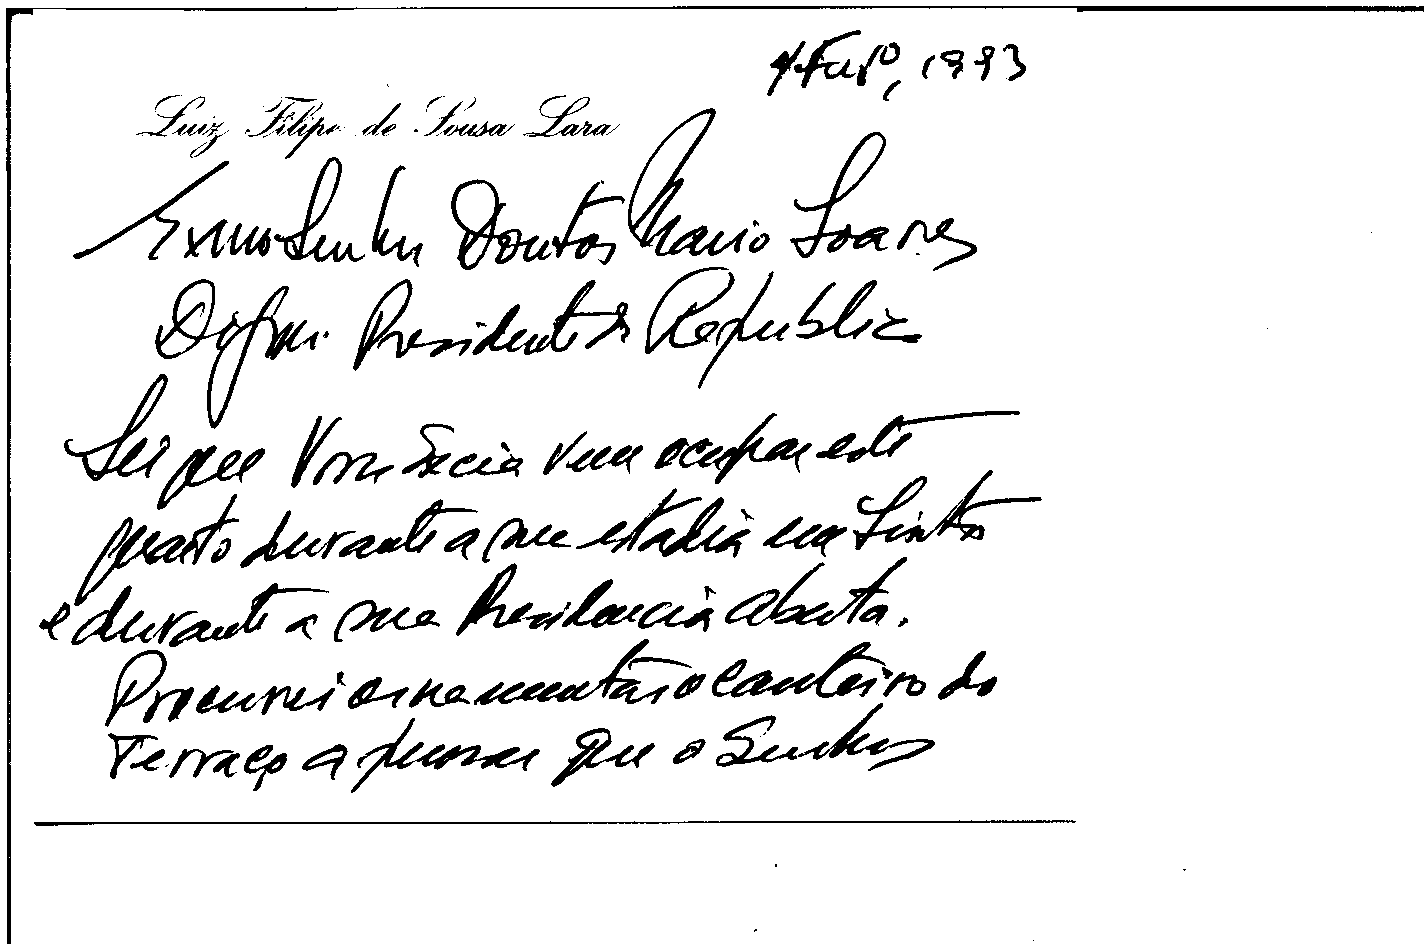 4 Fevº, 1993
Luiz Filipe de Sousa Lara
Exmo Senhor Doutor Mario Soares
Digmo. Presidente da Republica
Sei que Vossa Excia vem ocupar este
quarto durante a sua estadia em Sintra
e durante a sua Presidencia aberta.
Procurei ornamentar o canteiro do
Terraço a pensar que o Senhor